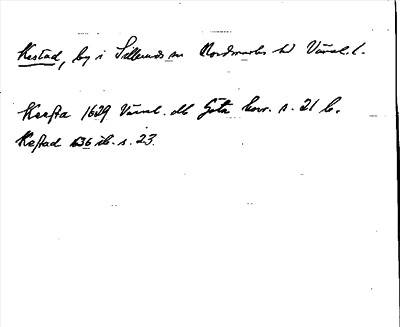 Kestad, by i Sillerud sn Nordmarks hd Värml. l.
Keafta 1629 Värml. db Göta hovr. s. 21 b.
Keftad 1636 ib. s. 23.